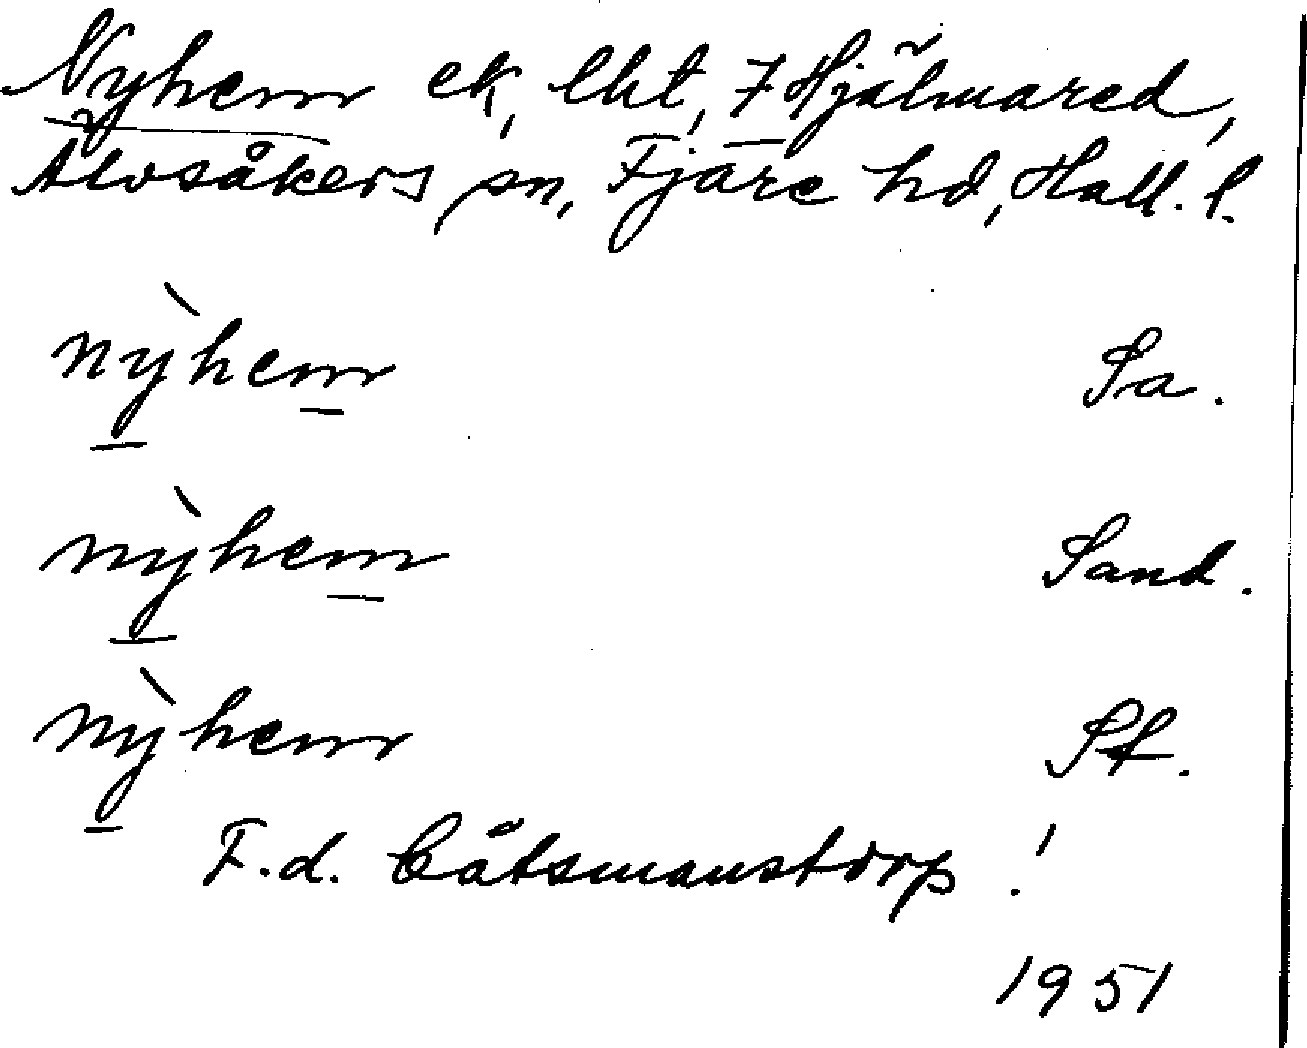 Nyhem ek, lht, 7 Hjälmared,
Älvsåkers sn, Fjäre hd, Hall. l.
nỳhem Sa.
nỳhem Sand.
nỳhem Sf.
F.d. båtsmanstorp !
1951